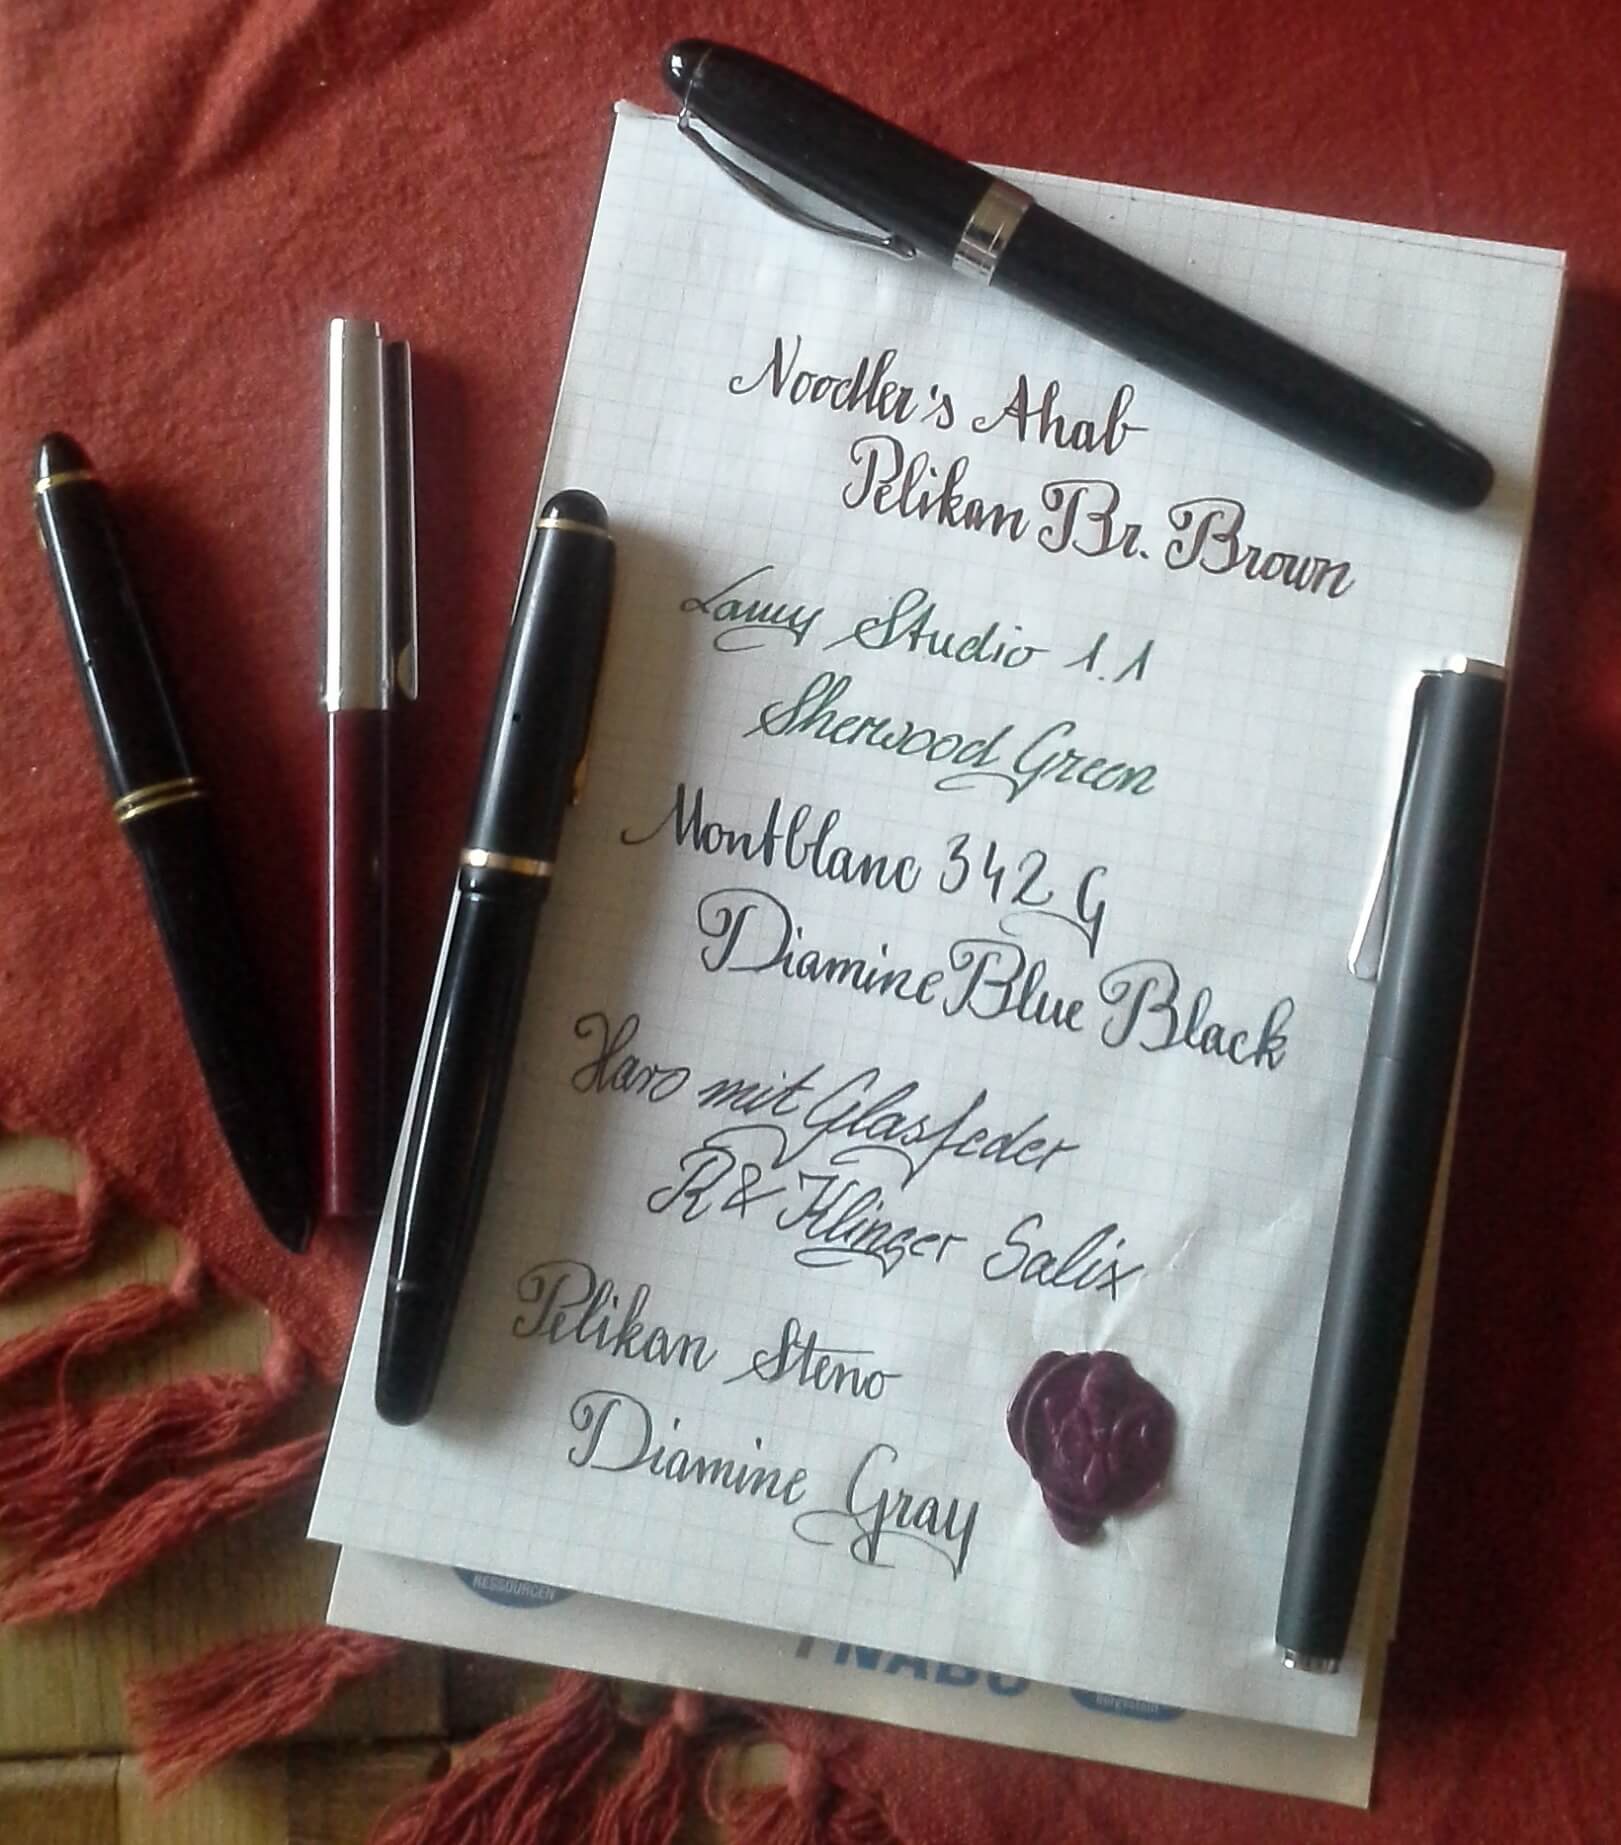 Noodler's Ahab
Pelikan Br. Brown
Lamy Studio 1.1
Sherwood Green
Montblanc 342 G
Diamine Blue Black
Haro mit Glasfeder
R & Klinger Salix
Pelikan Steno
Diamine Gray
RESSOURCEN
NABU